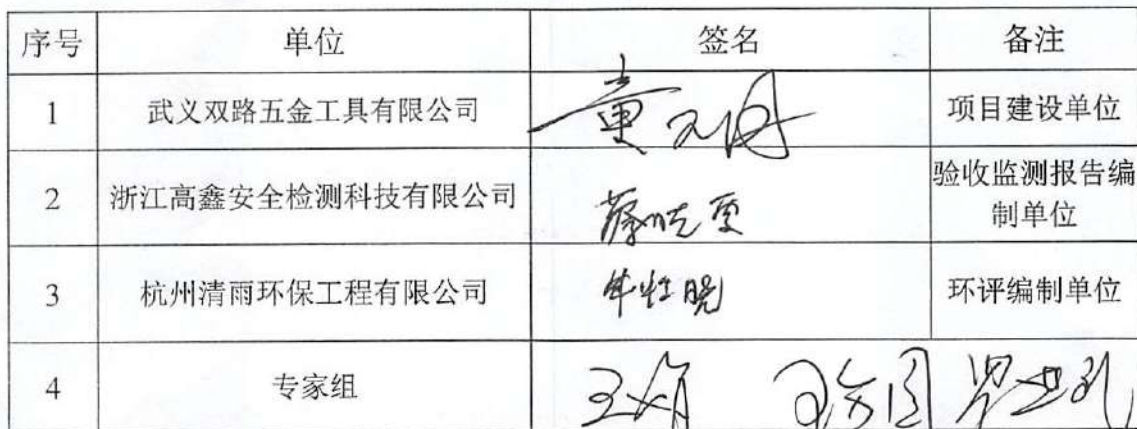 序号 单位 签名 备注
1 武义双路五金工具有限公司 项目建设单位
2 浙江高鑫安全检测科技有限公司 验收监测报告编
制单位
3 杭州清雨环保工程有限公司 环评编制单位
4 专家组